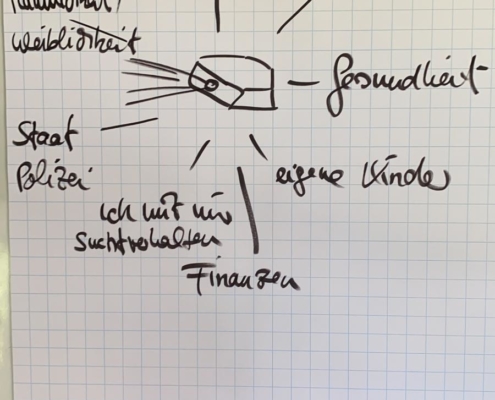 weiblichkeit
Gesundheit
Staat
Polizei
eigene Kinder
ich mit mir
Suchtverhalten
Finanzen